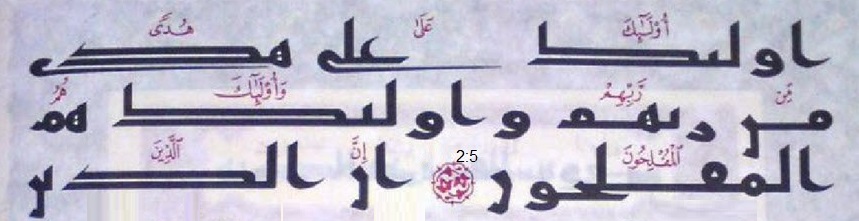 أُو۟لَـٰٓئِكَ عَلَىٰ هُدًى
اولىك على هدى
مِّن رَّبِّهِمْ وَأُو۟لَـٰٓئِكَ هُمُ
من ربهم و اولىك هم
ٱلْمُفْلِحُونَ 2:5 إِنَّ ٱلَّذِينَ
المفلحون ان الذين